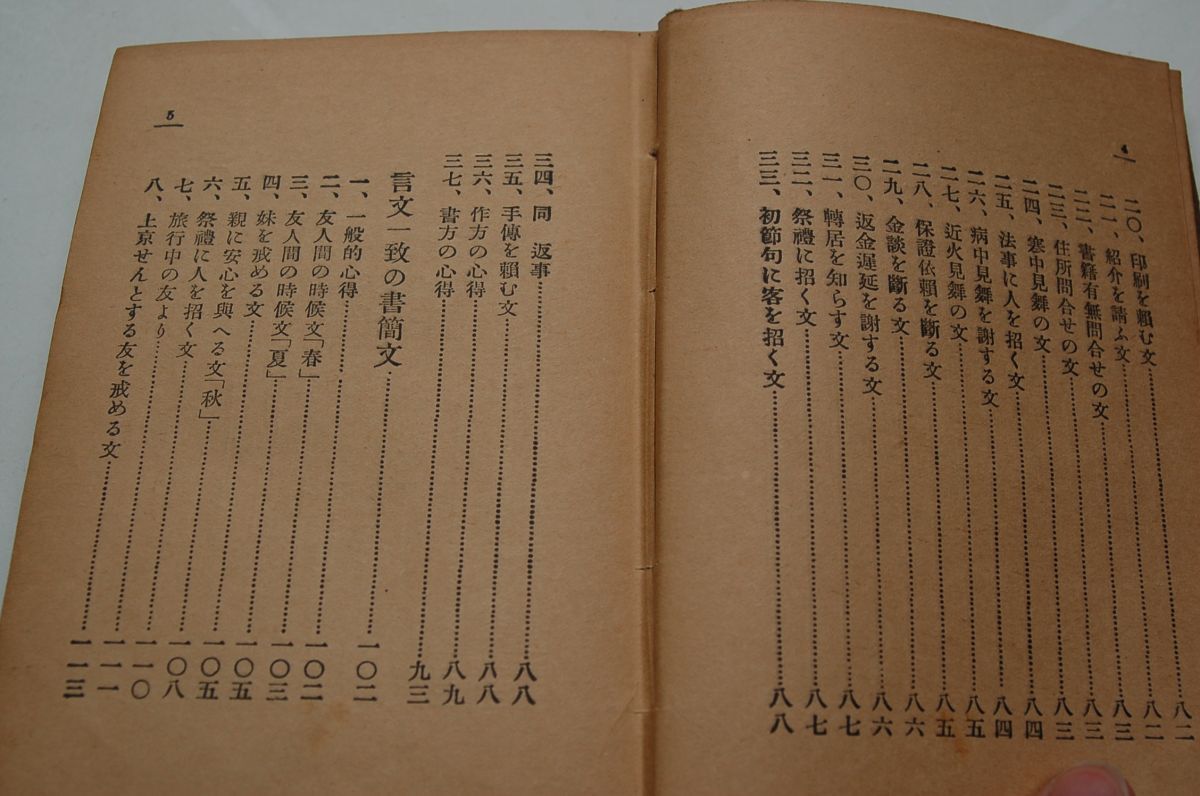 4
二〇、印刷を賴む文……八二
二一、紹介を請ふ文……八二
二二、書籍有無問合せの文……八三
二三、住所問合せの文……八三
二四、寒中見舞の文……八三
二五、法事に人を招く文……八四
二六、病中見舞を謝する文……八四
二七、近火見舞の文……八五
二八、保證依賴を斷る文……八五
二九、金談を斷る文……八六
三〇、返金遲延を謝する文……八六
三一、轉居を知らす文……八七
三二、祭禮に招く文……八七
三三、初節句に客を招く文……八八
5
三四、同　返事……八八
三五、手傳を賴む文……八八
三六、作方の心得……八九
三七、書方の心得……九三
言文一致の書簡文……一〇二
一、一般的心得……一〇二
二、友人間の時候文「春」……一〇三
三、友人間の時候文「夏」……一〇五
四、妹を戒める文……一〇五
五、親に安心を與へる文「秋」……一〇八
六、祭禮に人を招く文……一一〇
七、旅行中の友より……一一一
八、上京せんとする友を戒める文……一一三